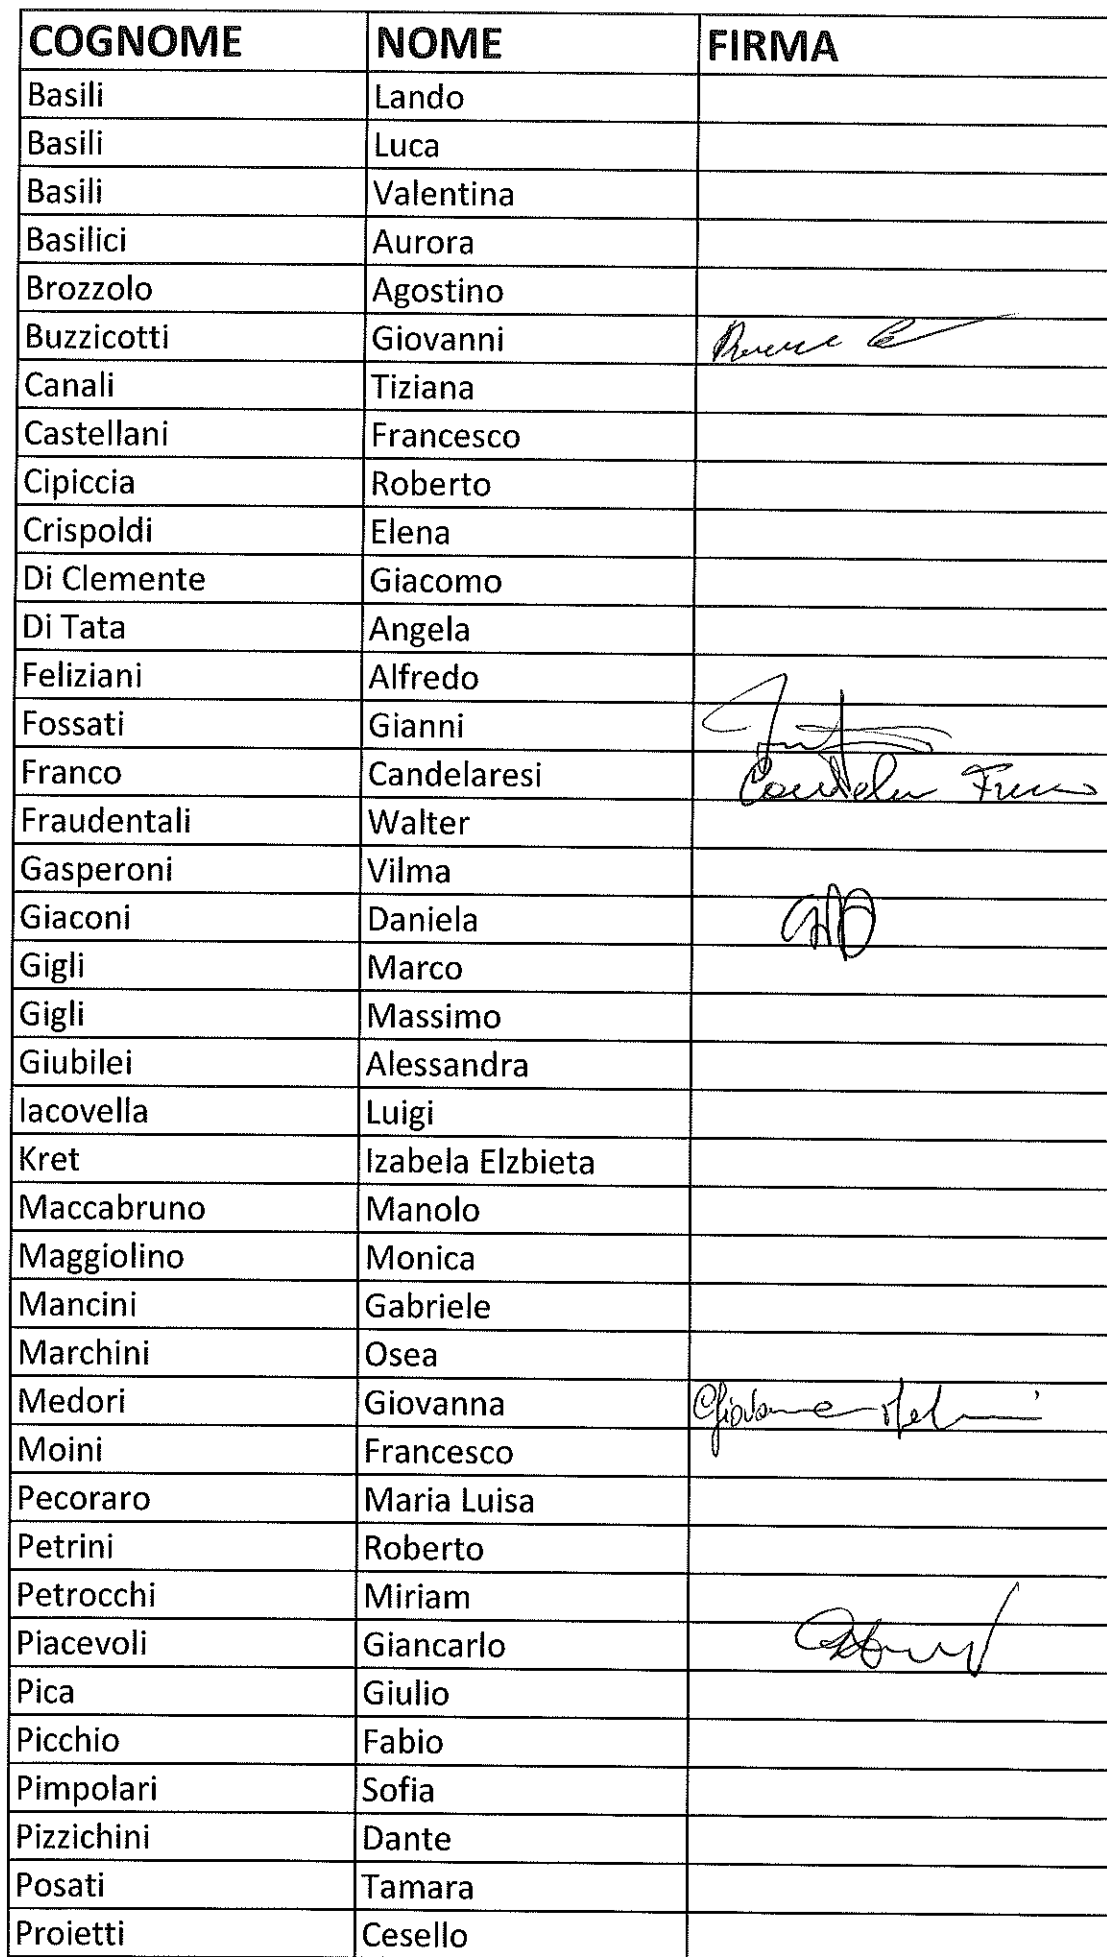 COGNOME NOME FIRMA
Basili Lando
Basili Luca
Basili Valentina
Basilici Aurora
Brozzolo Agostino
Buzzicotti Giovanni
Canali Tiziana
Castellani Francesco
Cipiccia Roberto
Crispoldi Elena
Di Clemente Giacomo
Di Tata Angela
Feliziani Alfredo
Fossati Gianni
Franco Candelaresi
Fraudentali Walter
Gasperoni Vilma
Giaconi Daniela
Gigli Marco
Gigli Massimo
Giubilei Alessandra
Iacovella Luigi
Kret Izabela Elzbieta
Maccabruno Manolo
Maggiolino Monica
Mancini Gabriele
Marchini Osea
Medori Giovanna Giovanna
Moini Francesco
Pecoraro Maria Luisa
Petrini Roberto
Petrocchi Miriam
Piacevoli Giancarlo
Pica Giulio
Picchio Fabio
Pimpolari Sofia
Pizzichini Dante
Posati Tamara
Proietti Cesello